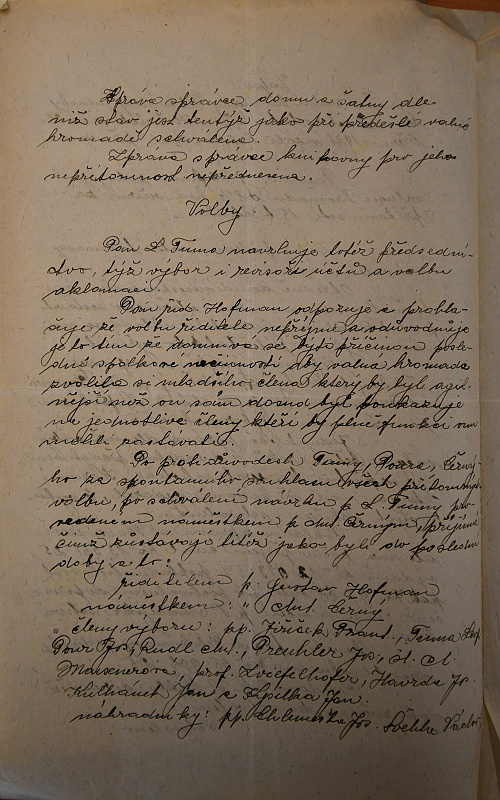 Zpráva správce domu a šatny dle
níž stav jest tentýž jako při předešlé valné
hromadě schválena.
Zpráva správce knihovny pro jeho
nepřítomnost nepřednesena.
Volby
Pan L. Tuma navrhuje totéž předsedni-
ctvo, týž výbor i revisory účtů a volbu
aklamací.
Pan řed. Hofman odporuje a prohla-
šuje že volbu ředitele nepřijme a odůvodňuje
je to tím že domnívá se býti příčinou posle-
dní spolkové nečinnosti aby valná hromada
zvolila si mladšího člena který by byl agil-
nější než on sám dosud byl poukazuje
na jednotlivé členy kteří by plně funkci onu
mohli zastávati.
Po důvodech Tumy, Poura, Černý-
ho za spontaního souhlasu všech přítomných
volbu, po schválení návrhu p L. Tumy pro-
vedenem náměstkem p. Ant. Černým, přijímá
čímž zůstávají titíž jako byli do poslední
doby a to:
ředitelem p. Gustav Hofman
náměstkem: " Ant. Černý
členy výboru: pp. Jiříček Frant., Tuma
Pour Jos, Rudl Ant., Preuhler Jos, sl. A.
prof. Zwiefelhofer, Havrda Js.
Kulhánek Jan a Jan.
náhradníky: pp. Jos.